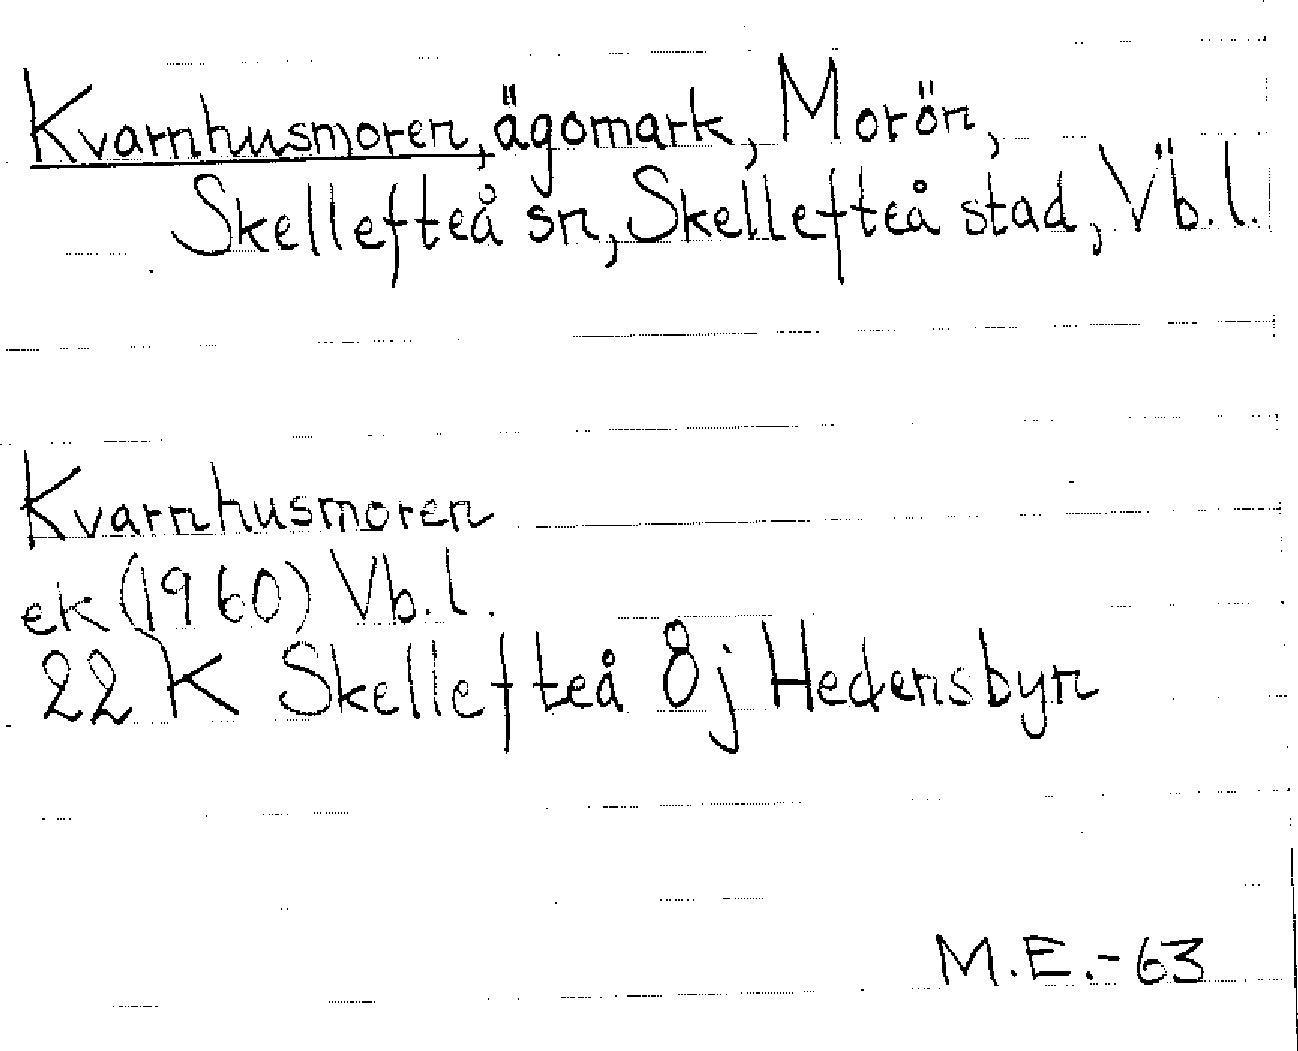 Kvarnhusmoren, ägomark, Morön,
Skellefteå sn, Skellefteå stad, Vb.l.
Kvarnhusmoren
ek (1960) Vb.l.
22 K Skellefteå 8j Hedensbyn
M.E.-63